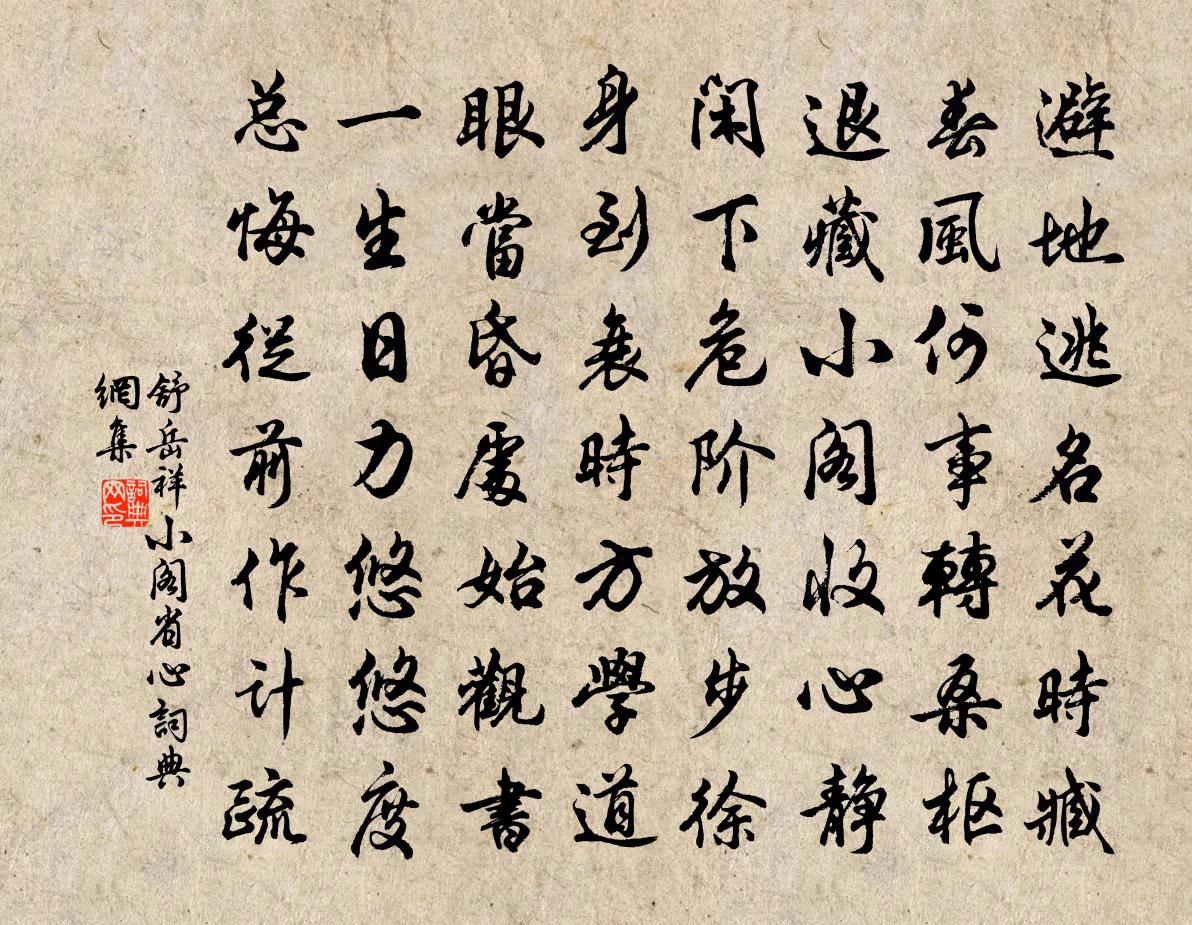 避地逃名花時臧
春風何事轉桑枢
退藏小阁收心静
闲下危阶放步徐
身到衰時方學道
眼當昏處始觀書
一生日力悠悠度
总悔從前作计疏
舒岳祥小阁省心詞典
網集
詞典网印